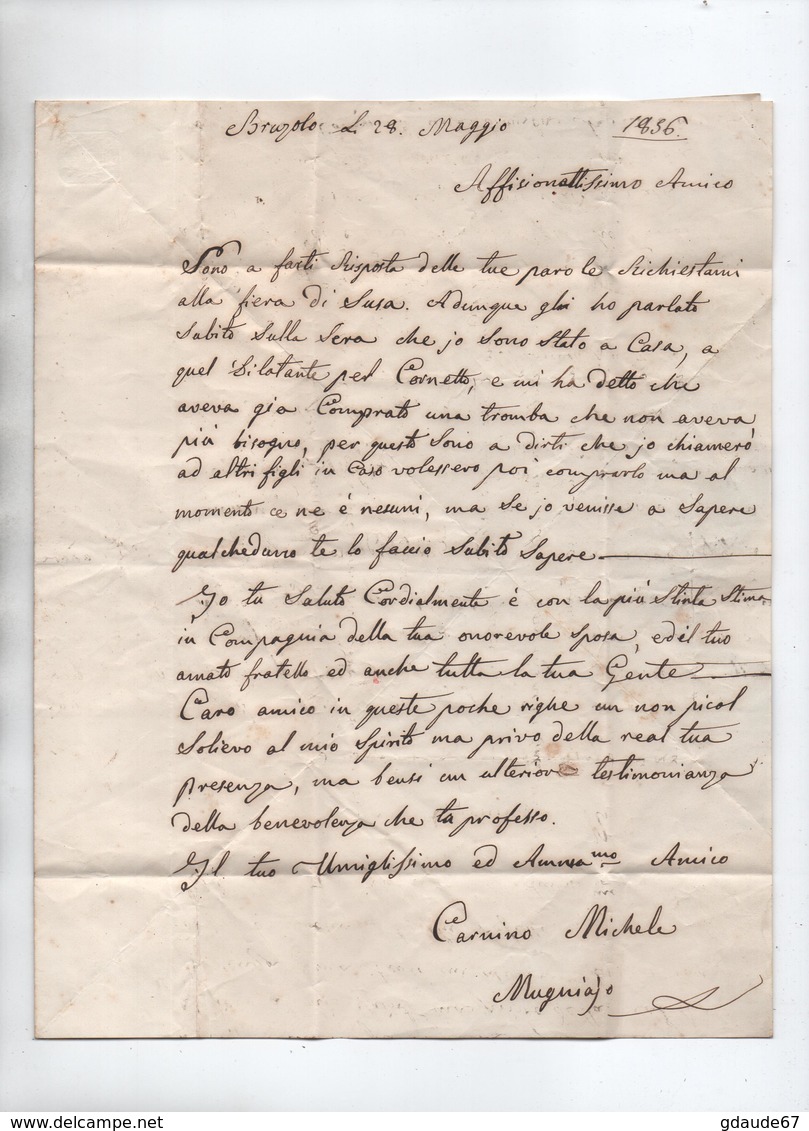 Bruzolo Li 28. Maggio 1856.
Affisionattissimo Amico
Sono a farti Risposta delle tue parole Richiestami
alla fiera di Susa. Adunque gli ho parlato
Subito Sulla Sera che jo Sono Stato a Casa, a
quel Dilatante pel Cornetto, e mi ha detto che
aveva gia Comprato una tromba che non aveva
più bisogno, per questo Sono a dirti che jo chiamerò
ad altri figli in Caso volessero poi comprarlo ma al
momento ce ne é nesuni, ma Se jo venisse a Sapere
qualcheduno te lo faccio Subito Sapere
Jo tu Saluto Cordialmente é con la più Stinta Stima
in Compagnia della tua onorevole Sposa, ed il tuo
amato fratello ed anche tutta la tua Gente
Caro amico in queste poche righe un non picol
Solievo al mio Spirito ma privo della real tua
presenza, ma bensi un ulteriore testimonianza
della benevolenza che tu professo.
Jl tuo Umiglissimo ed Amam.mo Amico
Carnino Michele
Mugniajo
© delcampe.net
gdaude67